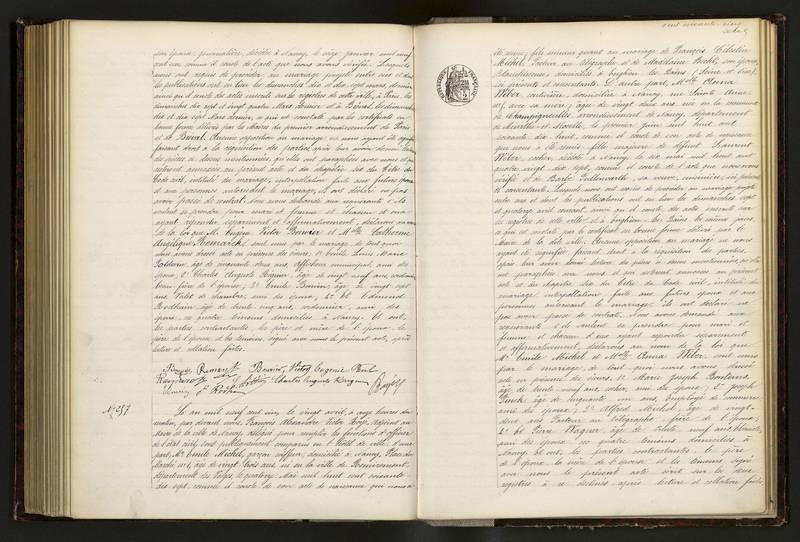 son épouse, journalière, décédée à Nancy le seize janvier mil neuf
cent un comme il conste de l'acte que nous avons vérifié. Lesquels
nous ont requis de procéder au mariage projeté entre eux et dont
les publications ont eu lieu les dimanches dix et dix sept mars, dernier
ainsi qu'il conste de celle inscrite sur les registres de cette ville, à Paris, les
dimanches dix sept et vingt quatre Mars dernier et à Bréval, les dimanches
dix et dix sept Mars dernier, ce qui est constaté par les certificats en
bonne forme délivrés par les Maires du premier arrondissement de Paris
et de Bréval. Aucune opposition au mariage ne nous ayant été signifiée
faisant droit à la réquisition des parties, après leur avoir donné lecture
des pièces ci dessus mentionnées, qu'elles ont paraphées avec nous et qui
resteront annexées au présent acte et du chapitre six du titre du
Code civil, intitulé du mariage, interpellation faite aux futurs époux
et aux personnes autorisant le mariage, ils ont déclaré ne pas
avoir passé de contrat. Nous avons demandé aux requérants s'ils
veulent se prendre pour mari et femme et chacun d'eux
ayant répondu séparément et affirmativement, déclarons au nom
de la loi que M. Eugène Victor Bouvier et Mlle Catherine
Angélique Remarck sont unis par le mariage de tout quoi
nous avons dressé acte en présence des sieurs: 1° Emile Louis Marie
âgé de cinquante deux ans, afficheur municipal, ami des
époux, 2° Charles Auguste Régnier, âgé de vingt neuf ans, cordonnier
beau frère de l'épouse; 3° Emile Bannier, âgé de vingt sept
ans Valet de chambre, ami des époux; 4° et Edmond
Rodhain âgé de trente cinq ans, cordonnier, ami des
époux, ces quatre témoins domiciliés à Nancy. Et ont,
les parties contractantes, le père et mère de l'époux, le
père de l'épouse, et les témoins signé avec nous le présent acte, après
lecture et collation faites.
N° 257
L'an mil neuf cent un, le vingt avril, à onze heures du
matin, par devant nous, François Alexandre Victor Boyé, adjoint au
Maire de la ville de Nancy, délégué pour remplir les fonctions d'officier
de l'état civil, sont publiquement comparus en l'Hôtel de ville, d'une
part, Mr Emile Michel, garçon coiffeur, domicilié à Nancy, Place du
Marché, âgé de vingt trois ans, né en la ville de Remiremont,
département des Vosges, le quatorze Mai mil huit cent soixante
dix sept, comme il conste de son acte de naissance qui nous a
cent soixante cinq
été remis; fils mineur quant au mariage de François Célestin
Michel, facteur au télégraphe et de Madeleine Becht, son épouse,
blanchisseuse, domiciliés à Enghien les Bains (Seine et Oise),
ici présents et consentants. Et d'autre part, Mlle Anna
Wéber, couturière, domiciliée à Nancy, rue Sainte Anne
avec sa mère; âgée de vingt deux ans, née en la commune
de Champigneulles, arrondissement de Nancy, département
de Meurthe et Moselle, le premier juin mil huit cent
soixante dix huit, comme il conste de son acte de naissance
qui nous a été remis, fille majeure de défunt Laurent
Wéber, cocher, décédé à Nancy, le six mai mil huit cent
quatre vingt dix sept, comme il conste de l'acte que nous avons
vérifié et de Barbe sa veuve, ménagère, ici présente
et consentante. Lesquels nous ont requis de procéder au mariage projeté
entre eux et dont les publications ont eu lieu les dimanches sept
et quatorze avril courant, ainsi qu'il conste des actes inscrits sur
les registres de cette ville et à Enghien les Bains les mêmes jours
ce qui est constaté par le certificat en bonne forme délivré par le
Maire de la dite ville. Aucune opposition au mariage ne nous
ayant été signifiée, faisant droit à la réquisition des parties,
après leur avoir donné lecture des pièces ci dessus mentionnées, qu'elles
ont paraphées avec nous et qui resteront annexées au présent
acte et du chapitre six du titre du Code civil, intitulé du
mariage, interpellation faite aux futurs époux et aux
personnes autorisant le mariage, ils ont déclaré ne
pas avoir passé de contrat. Nous avons demandé aux
requérants s'ils veulent se prendre pour mari et
femme et chacun d'eux ayant répondu séparément
et affirmativement, déclarons au nom de la loi que
Mr Emile Michel et Mlle Anna Wéber sont unis
par le mariage, de tout quoi nous avons dressé
acte en présence des sieurs, 1° Marie Joseph
âgé de trente neuf ans, ami des époux, 2° Joseph
âgé de cinquante un ans, employé de commerce
ami des époux; 3° Alfred Michel, âgé de vingt
deux ans facteur au télégraphe, frère de l'époux;
4° et Pierre Wagner, âgé de trente neuf ans,
ami des époux, ces quatre témoins domiciliés à
Nancy. Et ont, les parties contractantes, le père
de l'époux, la mère de l'épouse et les témoins signé
avec nous le présent acte, écrit sur les deux
registres à ce destinés après lecture et collation faites.